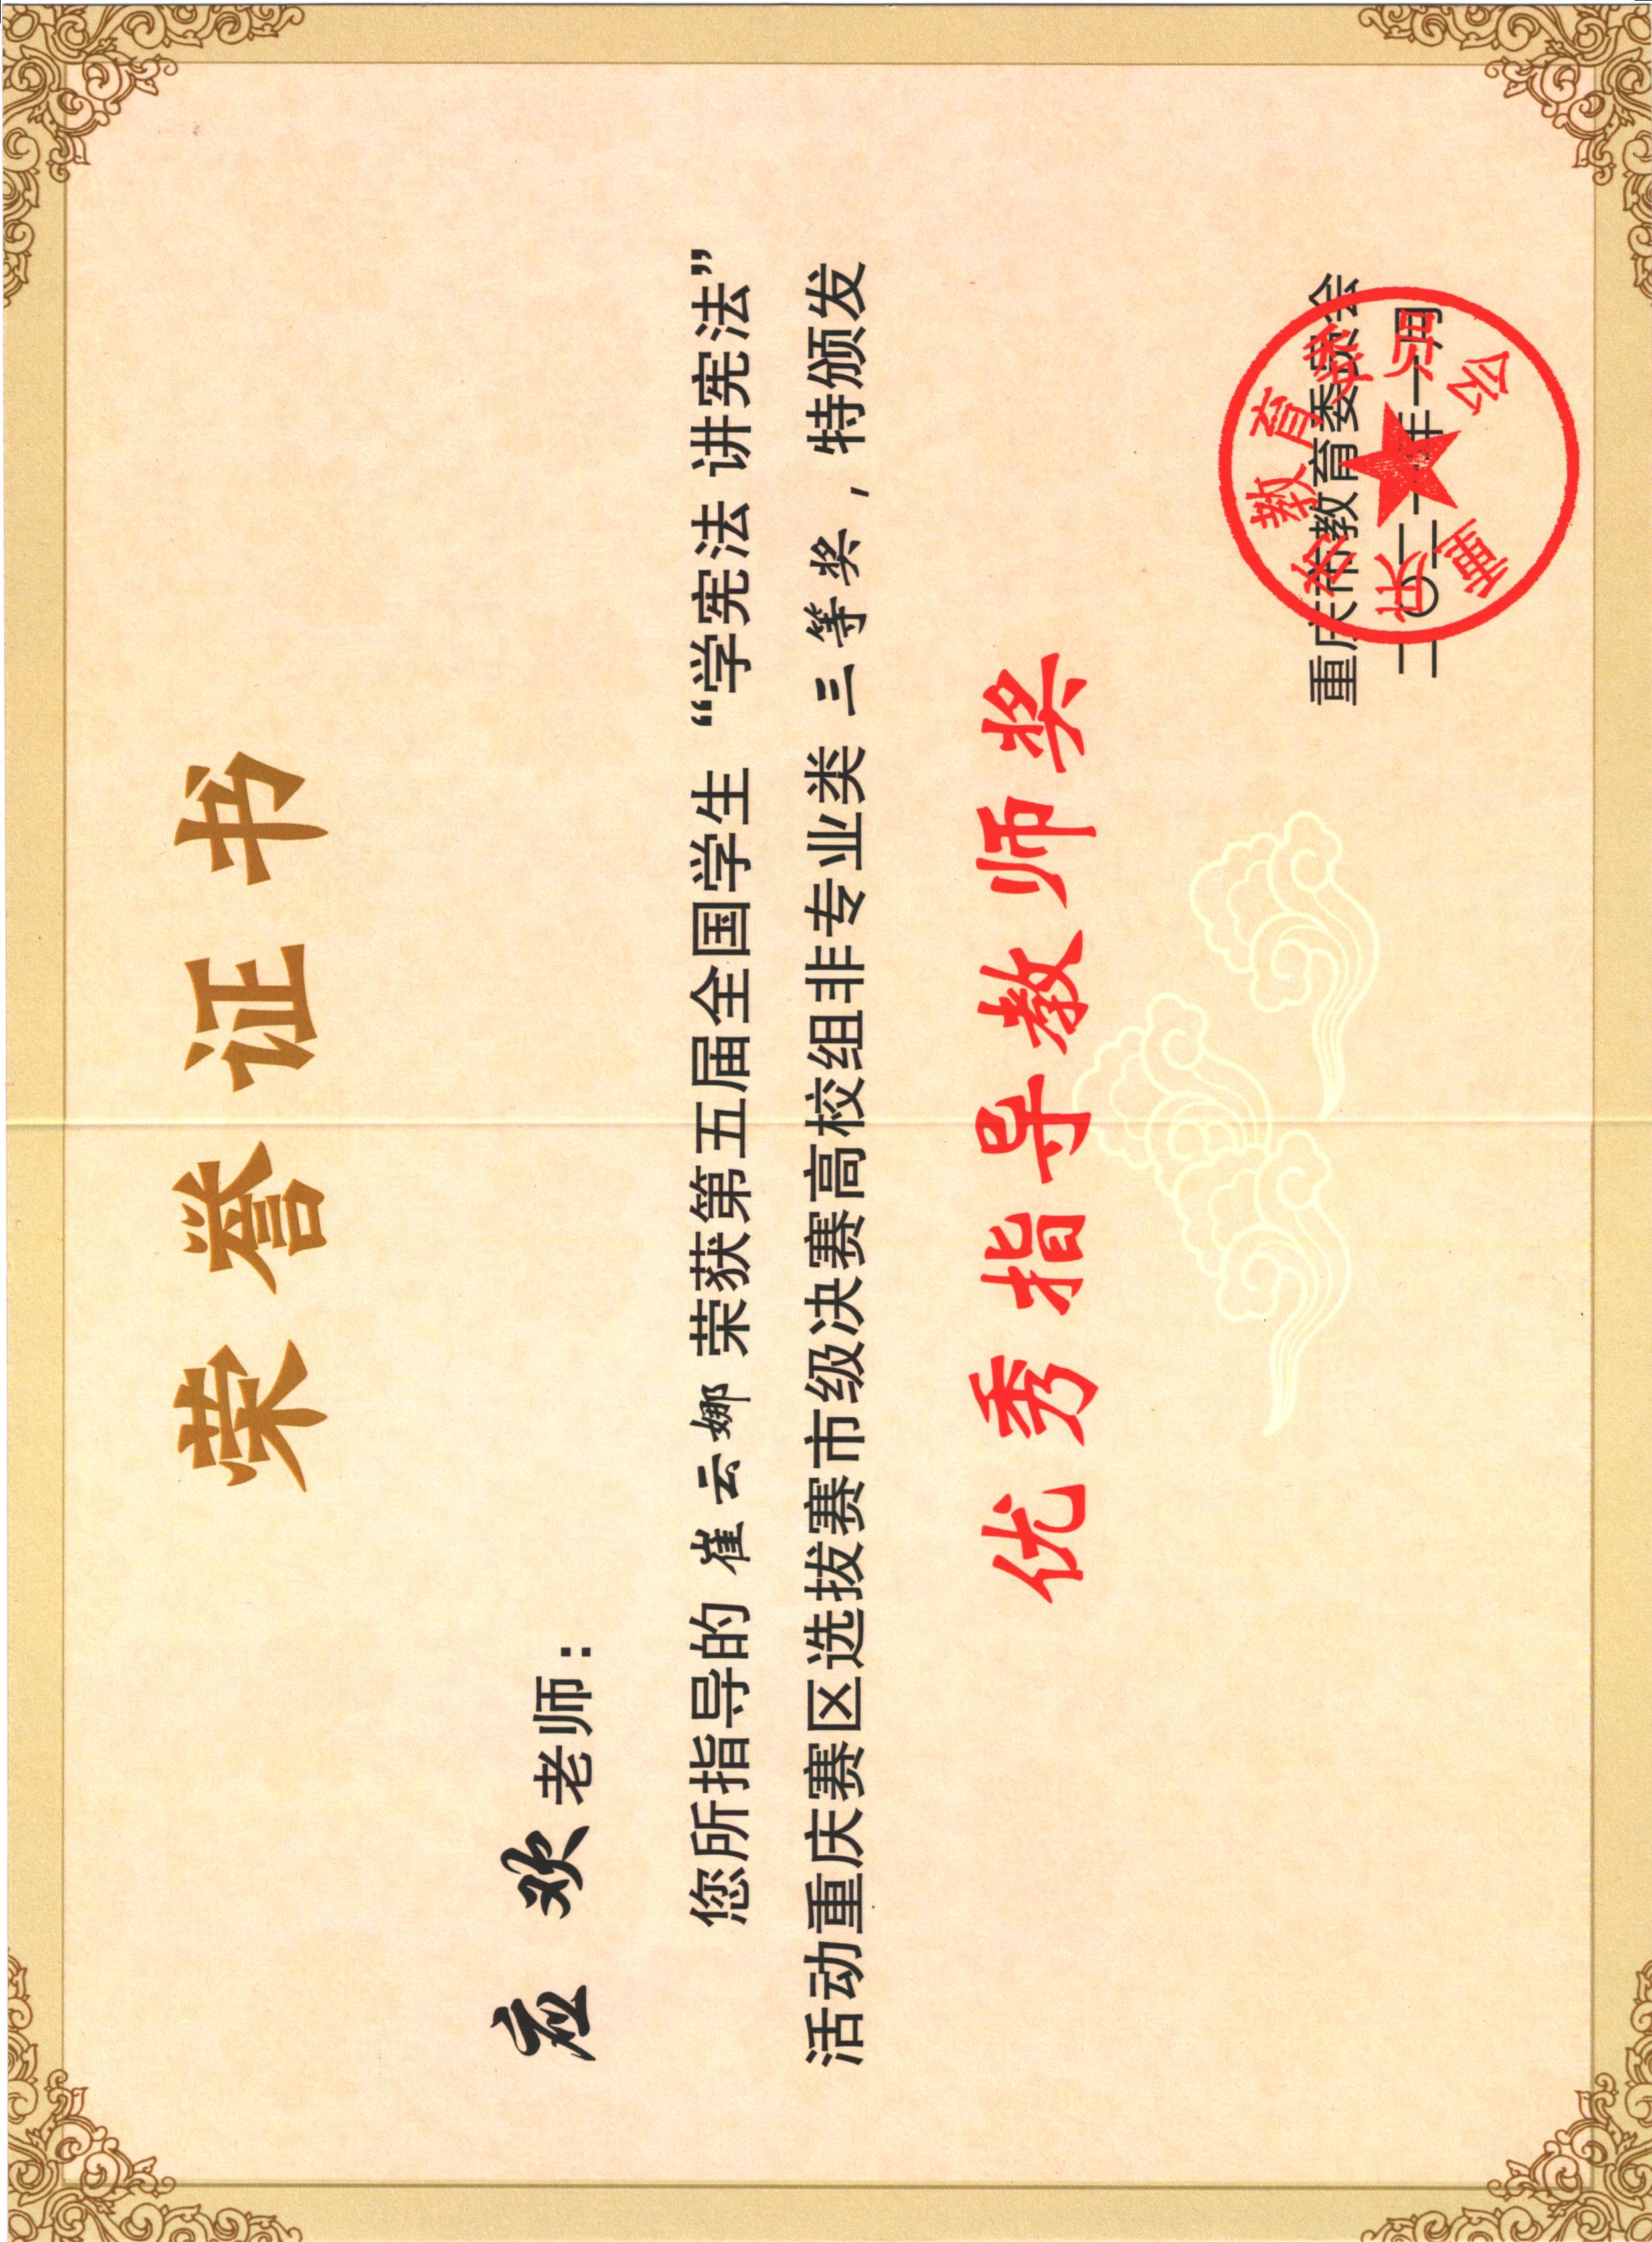 荣誉证书
应欢老师：
您所指导的 崔云娜 荣获第五届全国学生“学宪法 讲宪法”
活动重庆赛区选拔赛市级决赛高校组非专业类 三等奖，特颁发
优秀指导教师奖
重庆市教育委员会
二〇二一年一月
重庆市教育委员会